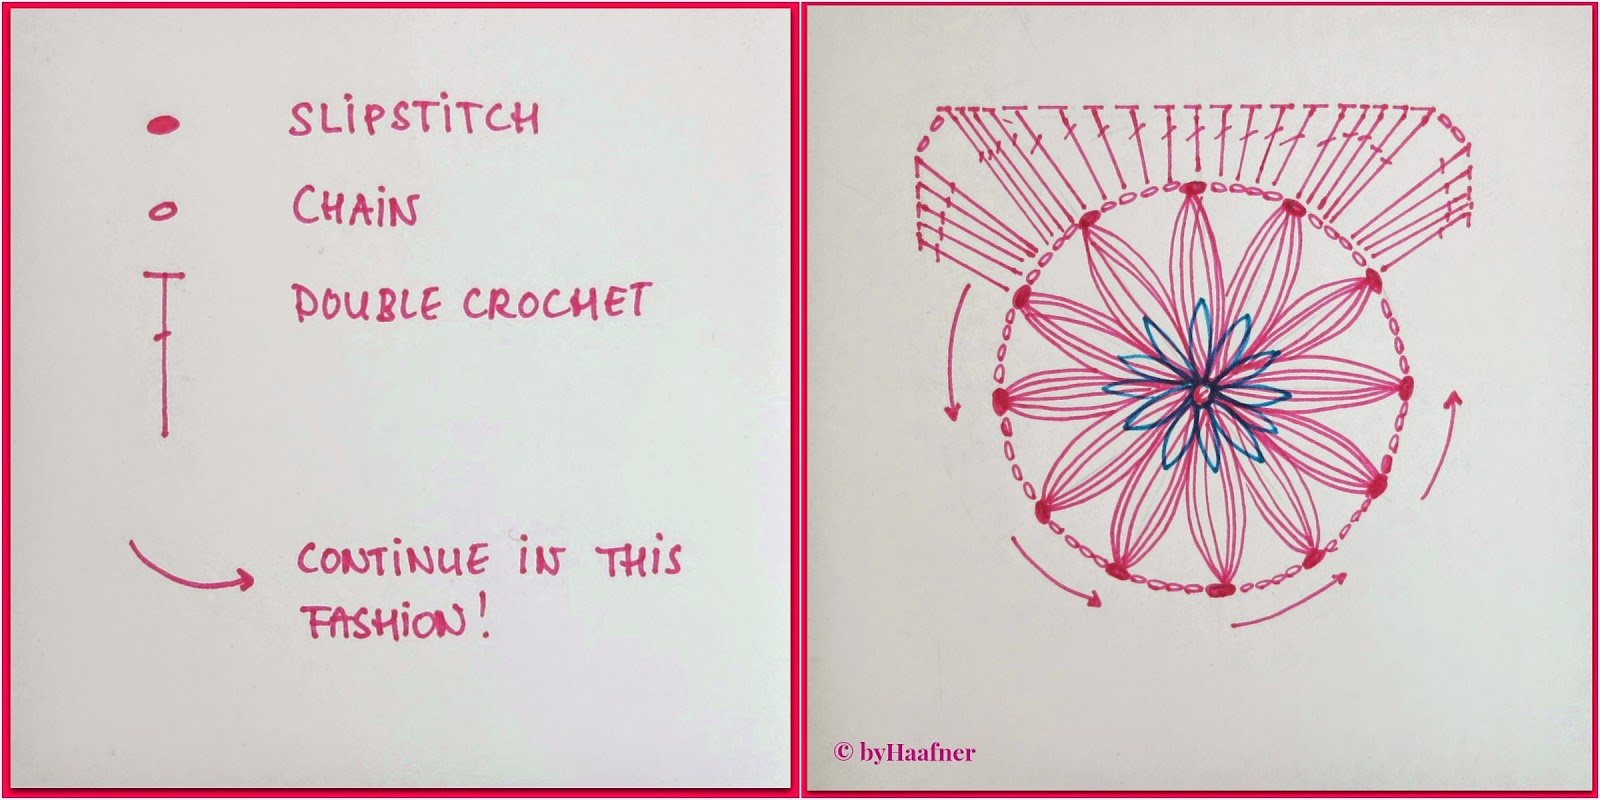 SLiPSTiTCH
CHAiN
DOUBLE CROCHET
CONTiNUE iN THiS
FASHiON!
© byHaafner